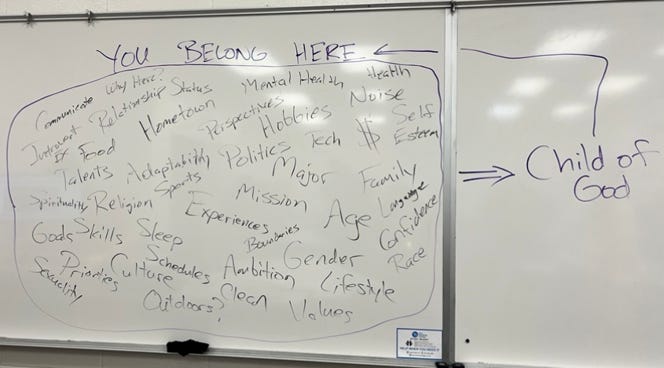 YOU BELONG HERE
Communicate
Why Here?
Relationship Status
Mental Health
Health
Introvert
Ex
Food
Hometown
Perspectives
Hobbies
Noise
Self
Esteem
Talents
Adaptability
Politics
Tech
$
Sports
Major
Family
Spirituality
Religion
Mission
Language
Experiences
Age
Confidence
Goals
Skills
Sleep
Boundaries
Gender
Race
Sexuality
Priorities
Culture
Schedules
Ambition
Lifestyle
Outdoors?
Clean
Values
Child of
God
HELP WHEN YOU NEED IT